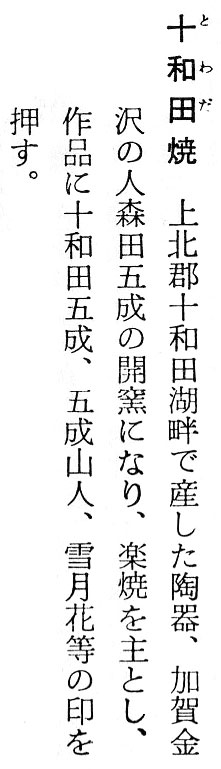 十和田焼　上北郡十和田湖畔で産した陶器、加賀金
沢の人森田五成の開窯になり、楽焼を主とし、
作品に十和田五成、五成山人、雪月花等の印を
押す。
とわだ